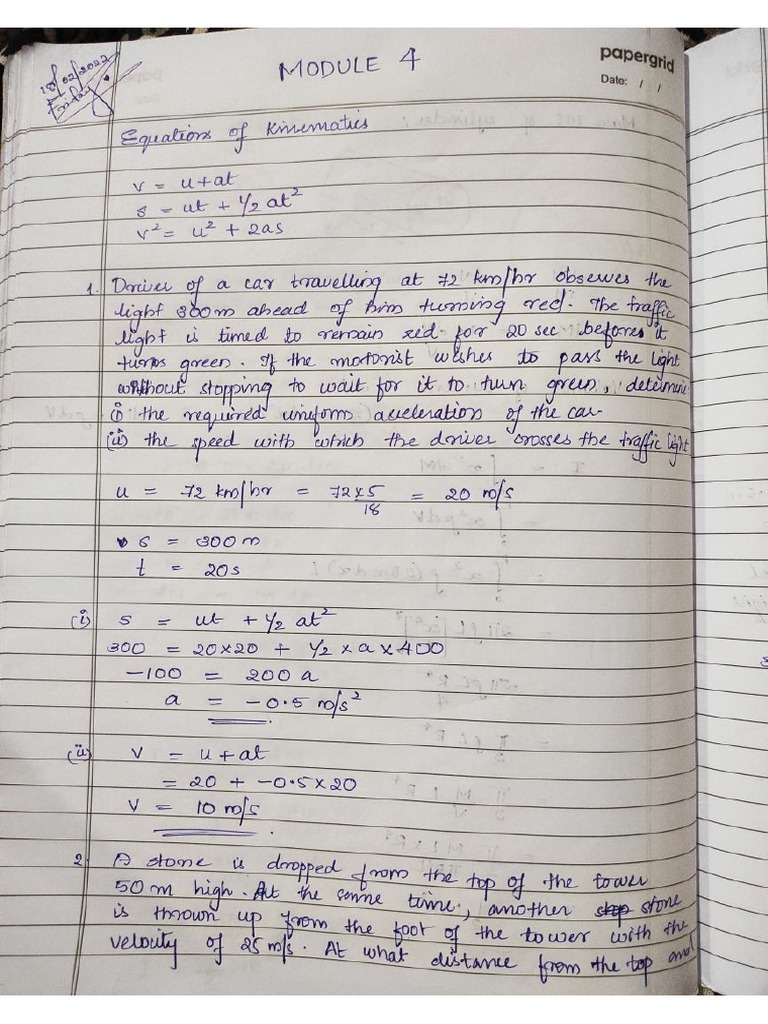 18/02/2022
Friday
MODULE 4
papergrid
Date: / /
Equations of Kinematics
v = u + at
s = ut + 1/2 at²
v² = u² + 2as
1. Driver of a car travelling at 72 km/hr observes the
light 300m ahead of him turning red. The traffic
light is timed to remain red for 20 sec before it
turns green. If the motorist wishes to pass the light
without stopping to wait for it to turn green, determine
(i) the required uniform acceleration of the car
(ii) the speed with which the driver crosses the traffic light
u = 72 km/hr = 72×5/18 = 20 m/s
s = 300 m
t = 20s
(i) s = ut + 1/2 at²
300 = 20×20 + 1/2 × a × 400
-100 = 200 a
a = -0.5 m/s²
(ii) v = u + at
= 20 + -0.5×20
v = 10 m/s
2. A stone is dropped from the top of the tower
50m high. At the same time, another stone
is thrown up from the foot of the tower with the
velocity of 25 m/s. At what distance from the top and